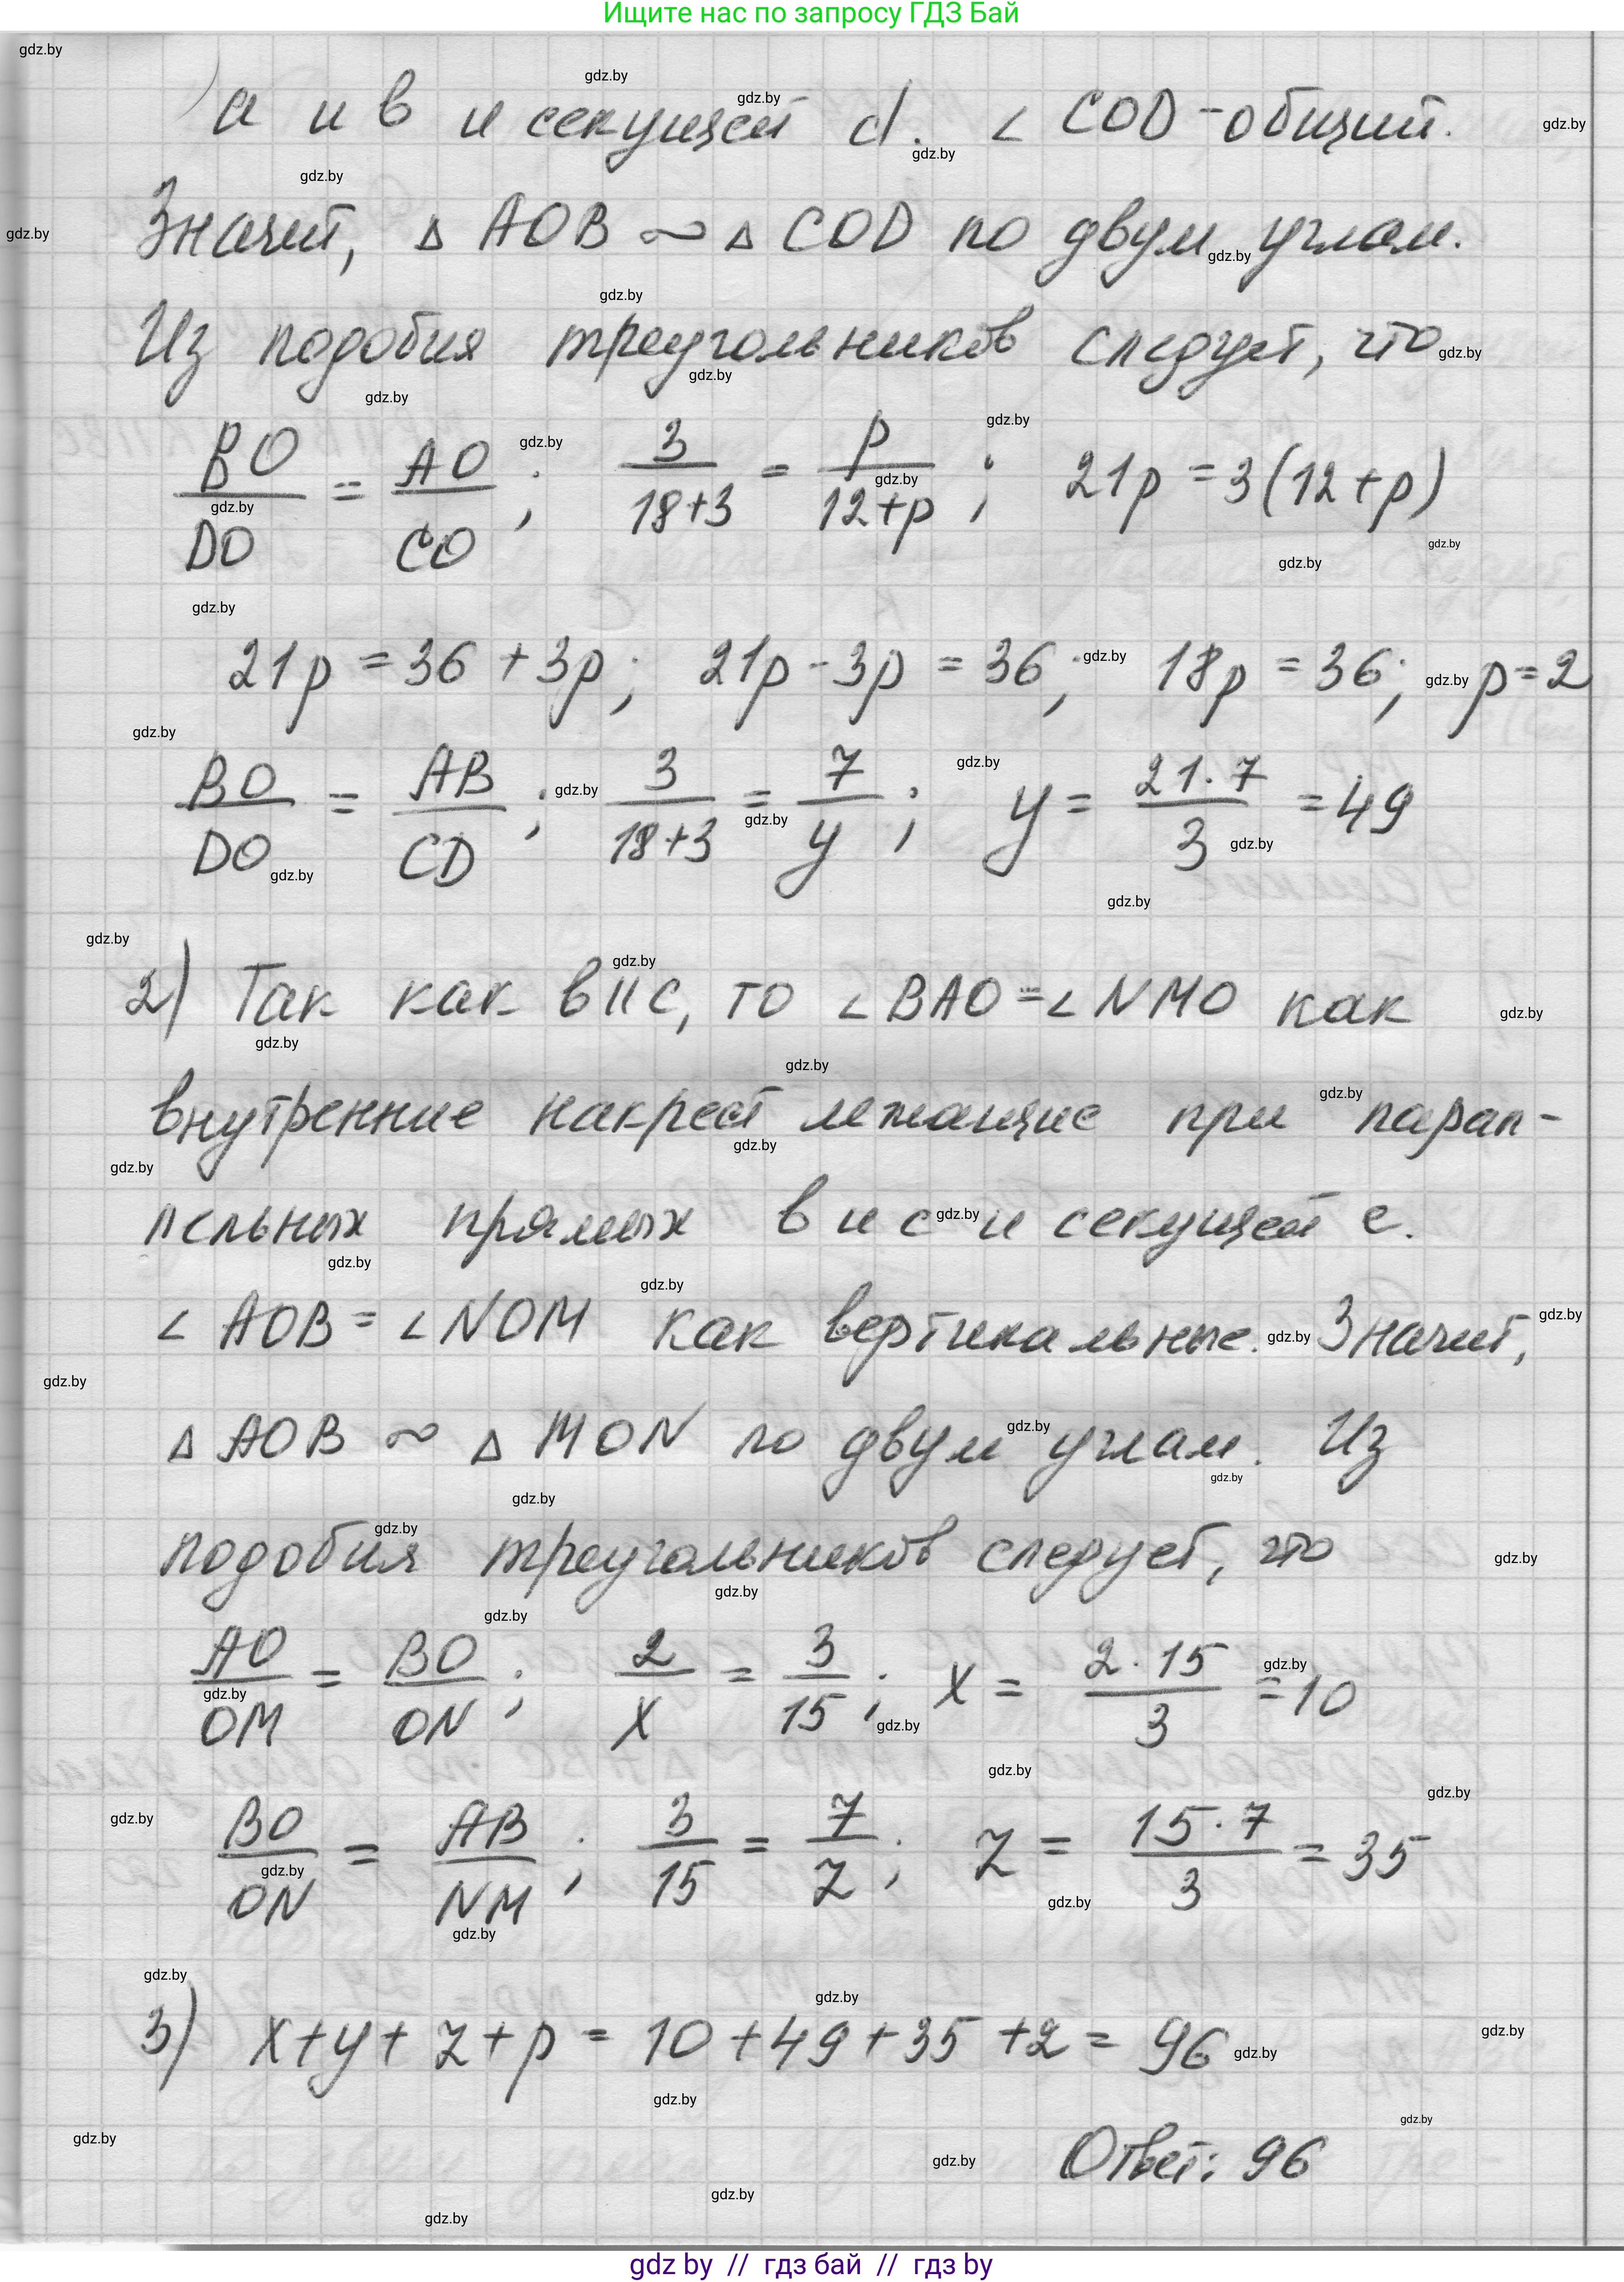 Ищите нас по запросу ГДЗ Бай
а и в и секущей d. ∠ COD - общий.
Значит, Δ AOB ∼ Δ COD по двум углам.
Из подобия треугольников следует, что
BO/DO = AO/CO; 3/(18+3) = p/(12+p); 21p = 3(12+p)
21p = 36 + 3p; 21p - 3p = 36; 18p = 36; p = 2
BO/DO = AB/CD; 3/(18+3) = 7/y; y = (21·7)/3 = 49
2) Так как в || с, то ∠ BAO = ∠ NMO как
внутренние накрест лежащие при парал-
лельных прямых в и с и секущей е.
∠ AOB = ∠ NOM как вертикальные. Значит,
Δ AOB ∼ Δ MON по двум углам. Из
подобия треугольников следует, что
AO/OM = BO/ON; 2/x = 3/15; x = (2·15)/3 = 10
BO/ON = AB/NM; 3/15 = 7/z; z = (15·7)/3 = 35
3) x + y + z + p = 10 + 49 + 35 + 2 = 96
Ответ: 96
gdz by // гдз бай // гдз by